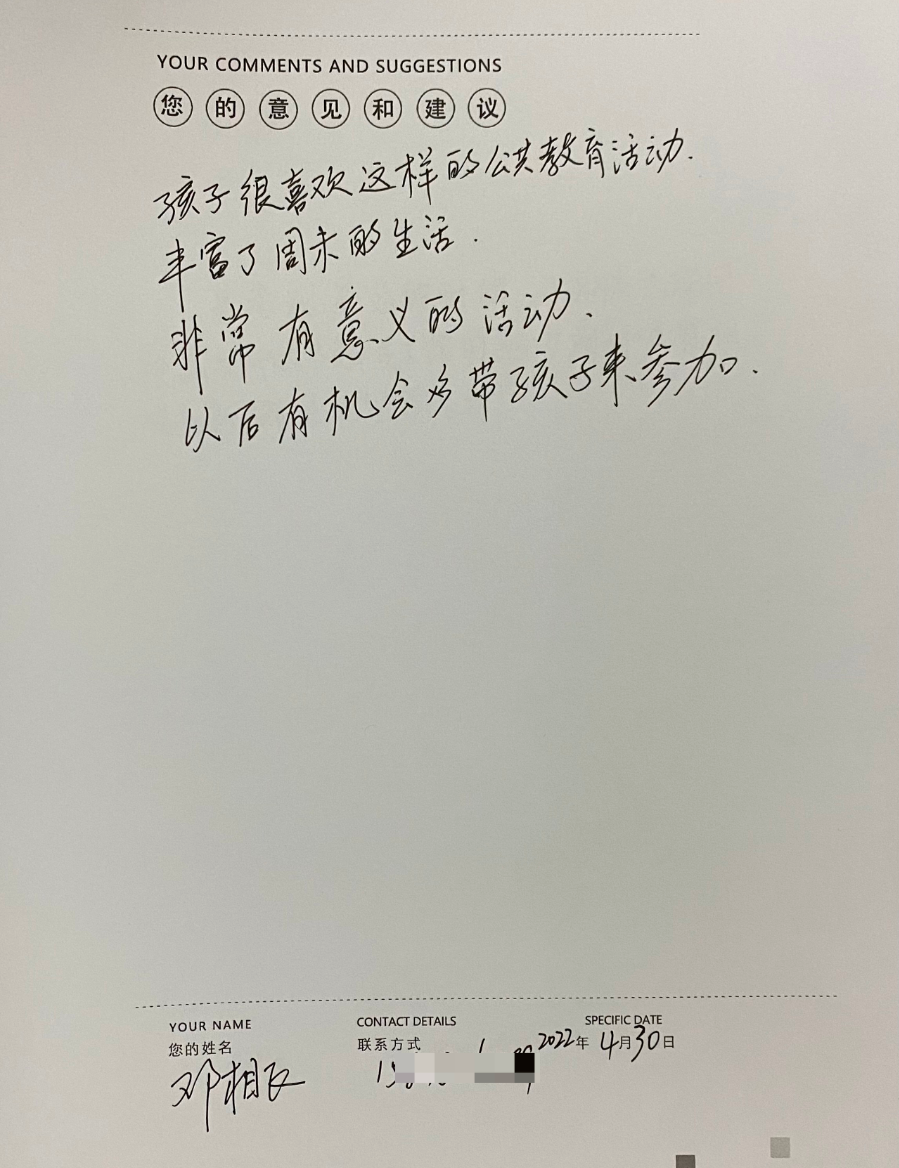 YOUR COMMENTS AND SUGGESTIONS
您的意见和建议
孩子很喜欢这样的公共教育活动.
丰富了周末的生活.
非常有意义的活动.
以后有机会多带孩子来参加.
YOUR NAME
您的姓名
CONTACT DETAILS
联系方式
SPECIFIC DATE
2022年4月30日
邓相